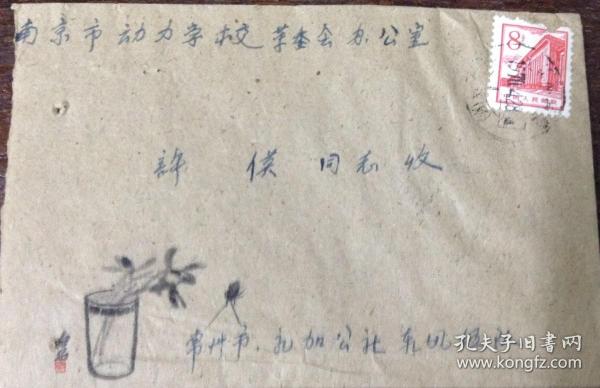 南京市动力学校革委会办公室
8
中国人民邮政
许 俟 同志收
常州市.孔加公社
孔夫子旧书网
www.kongfz.com